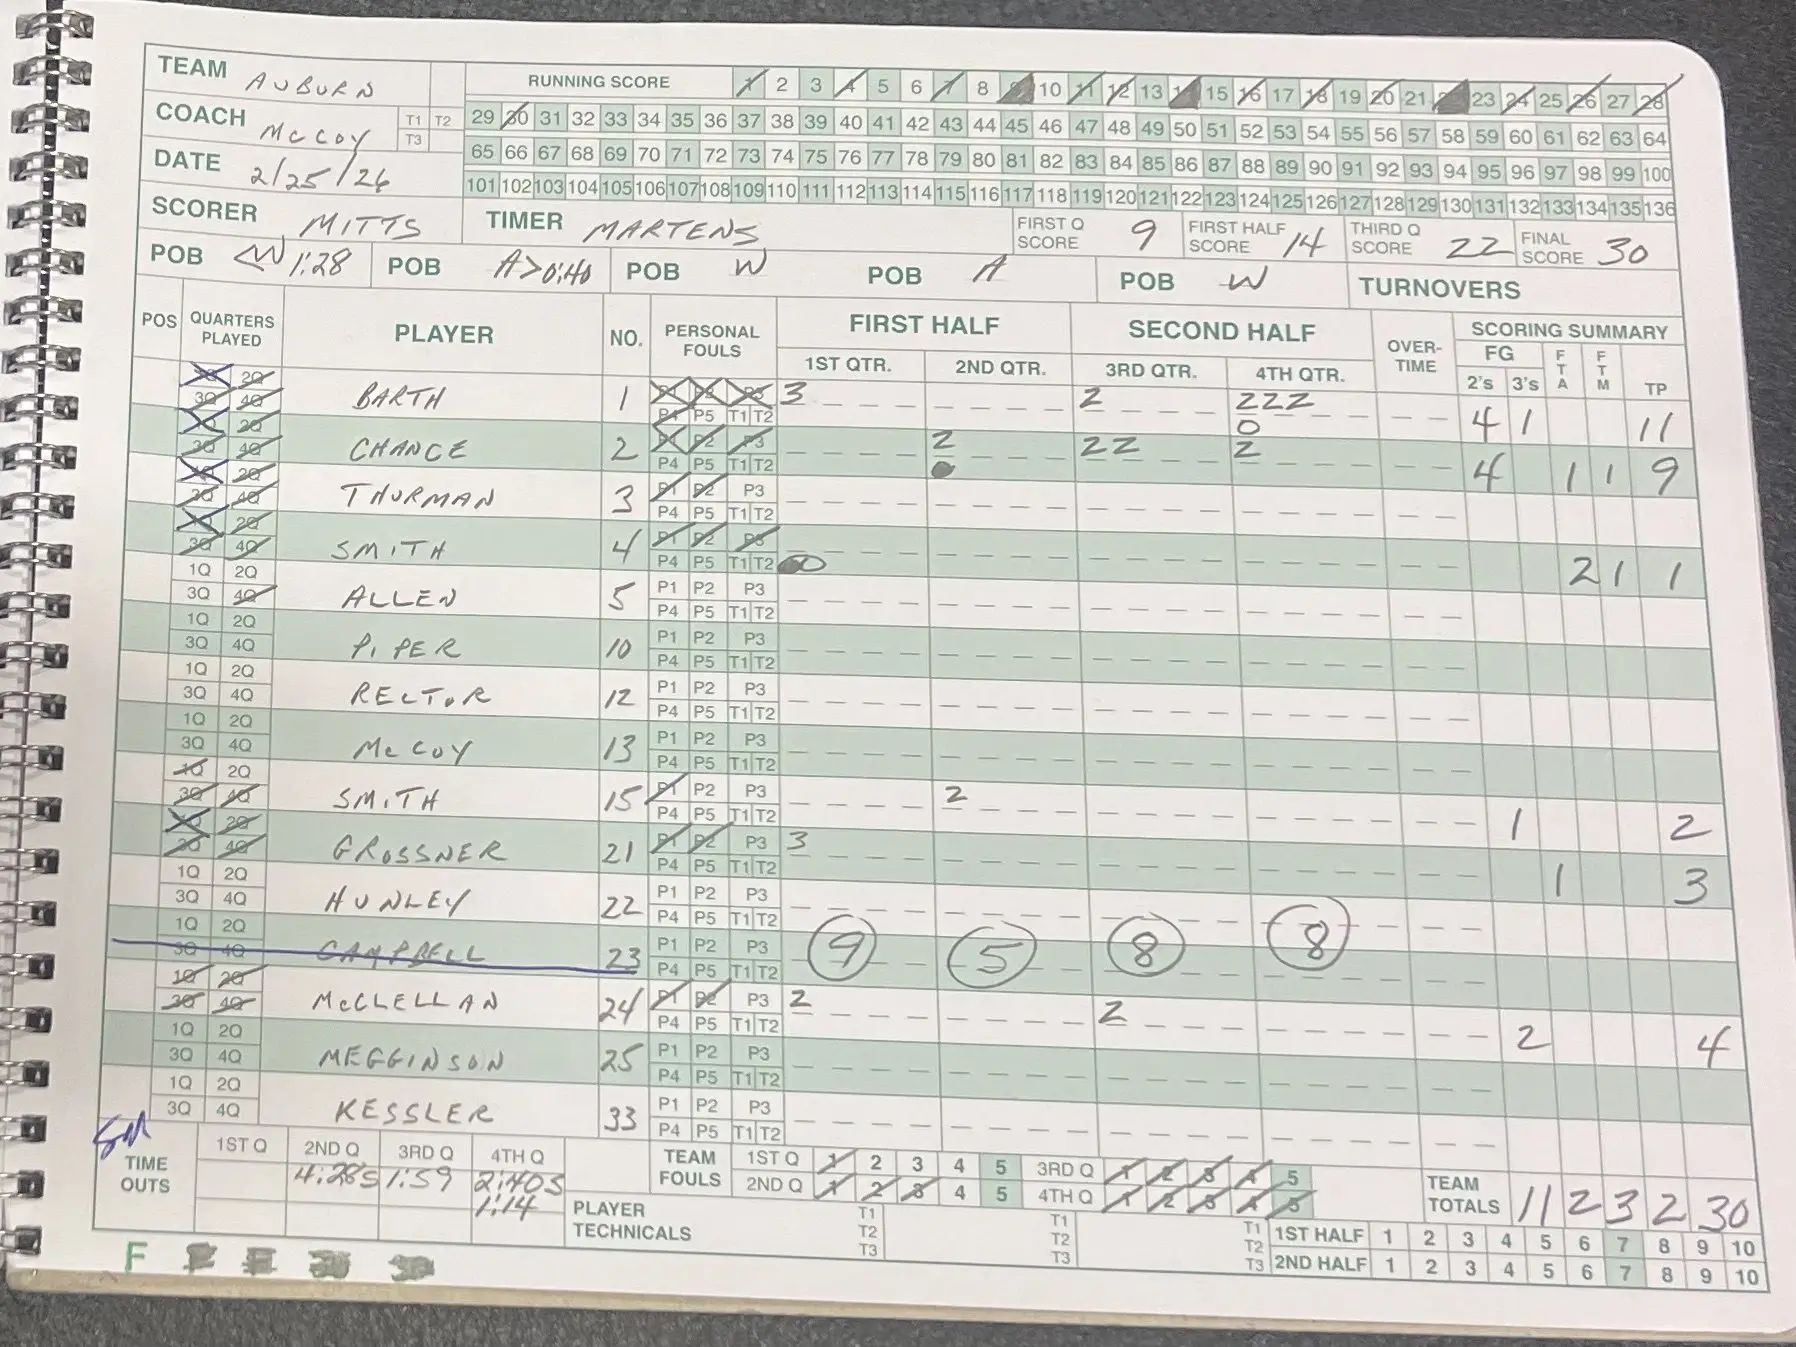 TEAM AUBURN RUNNING SCORE 1 2 3 4 5 6 7 8 9 10 11 12 13 14 15 16 17 18 19 20 21 22 23 24 25 26 27 28
COACH McCOY T1 T2 T3 29 30 31 32 33 34 35 36 37 38 39 40 41 42 43 44 45 46 47 48 49 50 51 52 53 54 55 56 57 58 59 60 61 62 63 64
65 66 67 68 69 70 71 72 73 74 75 76 77 78 79 80 81 82 83 84 85 86 87 88 89 90 91 92 93 94 95 96 97 98 99 100
DATE 2/25/26 101 102 103 104 105 106 107 108 109 110 111 112 113 114 115 116 117 118 119 120 121 122 123 124 125 126 127 128 129 130 131 132 133 134 135 136
SCORER MITTS TIMER MARTENS FIRST Q SCORE 9 FIRST HALF SCORE 14 THIRD Q SCORE 22 FINAL SCORE 30
POB <W 1:28 POB A> 0:40 POB W POB A POB W TURNOVERS
POS QUARTERS PLAYED PLAYER NO. PERSONAL FOULS FIRST HALF SECOND HALF OVER-TIME SCORING SUMMARY
1ST QTR. 2ND QTR. 3RD QTR. 4TH QTR. FG 2's 3's FTA FTM TP
1Q 2Q 3Q 4Q BARTH 1 P1 P2 P3 P4 P5 T1 T2 3 2 222 4 1 11
1Q 2Q 3Q 4Q CHANCE 2 P1 P2 P3 P4 P5 T1 T2 2 22 0 2 4 1 1 9
1Q 2Q 3Q 4Q THURMAN 3 P1 P2 P3 P4 P5 T1 T2
1Q 2Q 3Q 4Q SMITH 4 P1 P2 P3 P4 P5 T1 T2 0 2 1 1
1Q 2Q 3Q 4Q ALLEN 5 P1 P2 P3 P4 P5 T1 T2
1Q 2Q 3Q 4Q PIPER 10 P1 P2 P3 P4 P5 T1 T2
1Q 2Q 3Q 4Q RECTOR 12 P1 P2 P3 P4 P5 T1 T2
1Q 2Q 3Q 4Q McCOY 13 P1 P2 P3 P4 P5 T1 T2
1Q 2Q 3Q 4Q SMITH 15 P1 P2 P3 P4 P5 T1 T2 2 1 2
1Q 2Q 3Q 4Q GROSSNER 21 P1 P2 P3 P4 P5 T1 T2 3 1 3
1Q 2Q 3Q 4Q HUNLEY 22 P1 P2 P3 P4 P5 T1 T2
1Q 2Q 3Q 4Q CAMPBELL 23 P1 P2 P3 P4 P5 T1 T2 9 5 8 8
1Q 2Q 3Q 4Q McCLELLAN 24 P1 P2 P3 P4 P5 T1 T2 2 2 2 4
1Q 2Q 3Q 4Q MEGGINSON 25 P1 P2 P3 P4 P5 T1 T2
1Q 2Q 3Q 4Q KESSLER 33 P1 P2 P3 P4 P5 T1 T2
TIME OUTS 1ST Q 2ND Q 3RD Q 4TH Q TEAM FOULS 1ST Q 1 2 3 4 5 3RD Q 1 2 3 4 5 TEAM TOTALS 11 2 3 2 30
4:28s 1:59 2:40s 2ND Q 1 2 3 4 5 4TH Q 1 2 3 4 5
1:14 PLAYER TECHNICALS T1 T2 T3 T1 T2 T3 T1 T2 T3 1ST HALF 1 2 3 4 5 6 7 8 9 10
2ND HALF 1 2 3 4 5 6 7 8 9 10
F